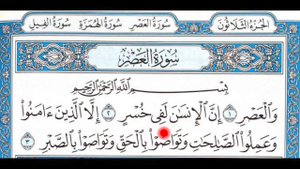 الجزء الثلاثون سورة العصر سورة الهمزة سورة الفيل
سورة العصر
بسم الله الرحمن الرحيم
وَالْعَصْرِ ١ إِنَّ الْإِنسَانَ لَفِي خُسْرٍ ٢ إِلَّا الَّذِينَ آمَنُوا
وَعَمِلُوا الصَّالِحَاتِ وَتَوَاصَوْا بِالْحَقِّ وَتَوَاصَوْا بِالصَّبْرِ ٣